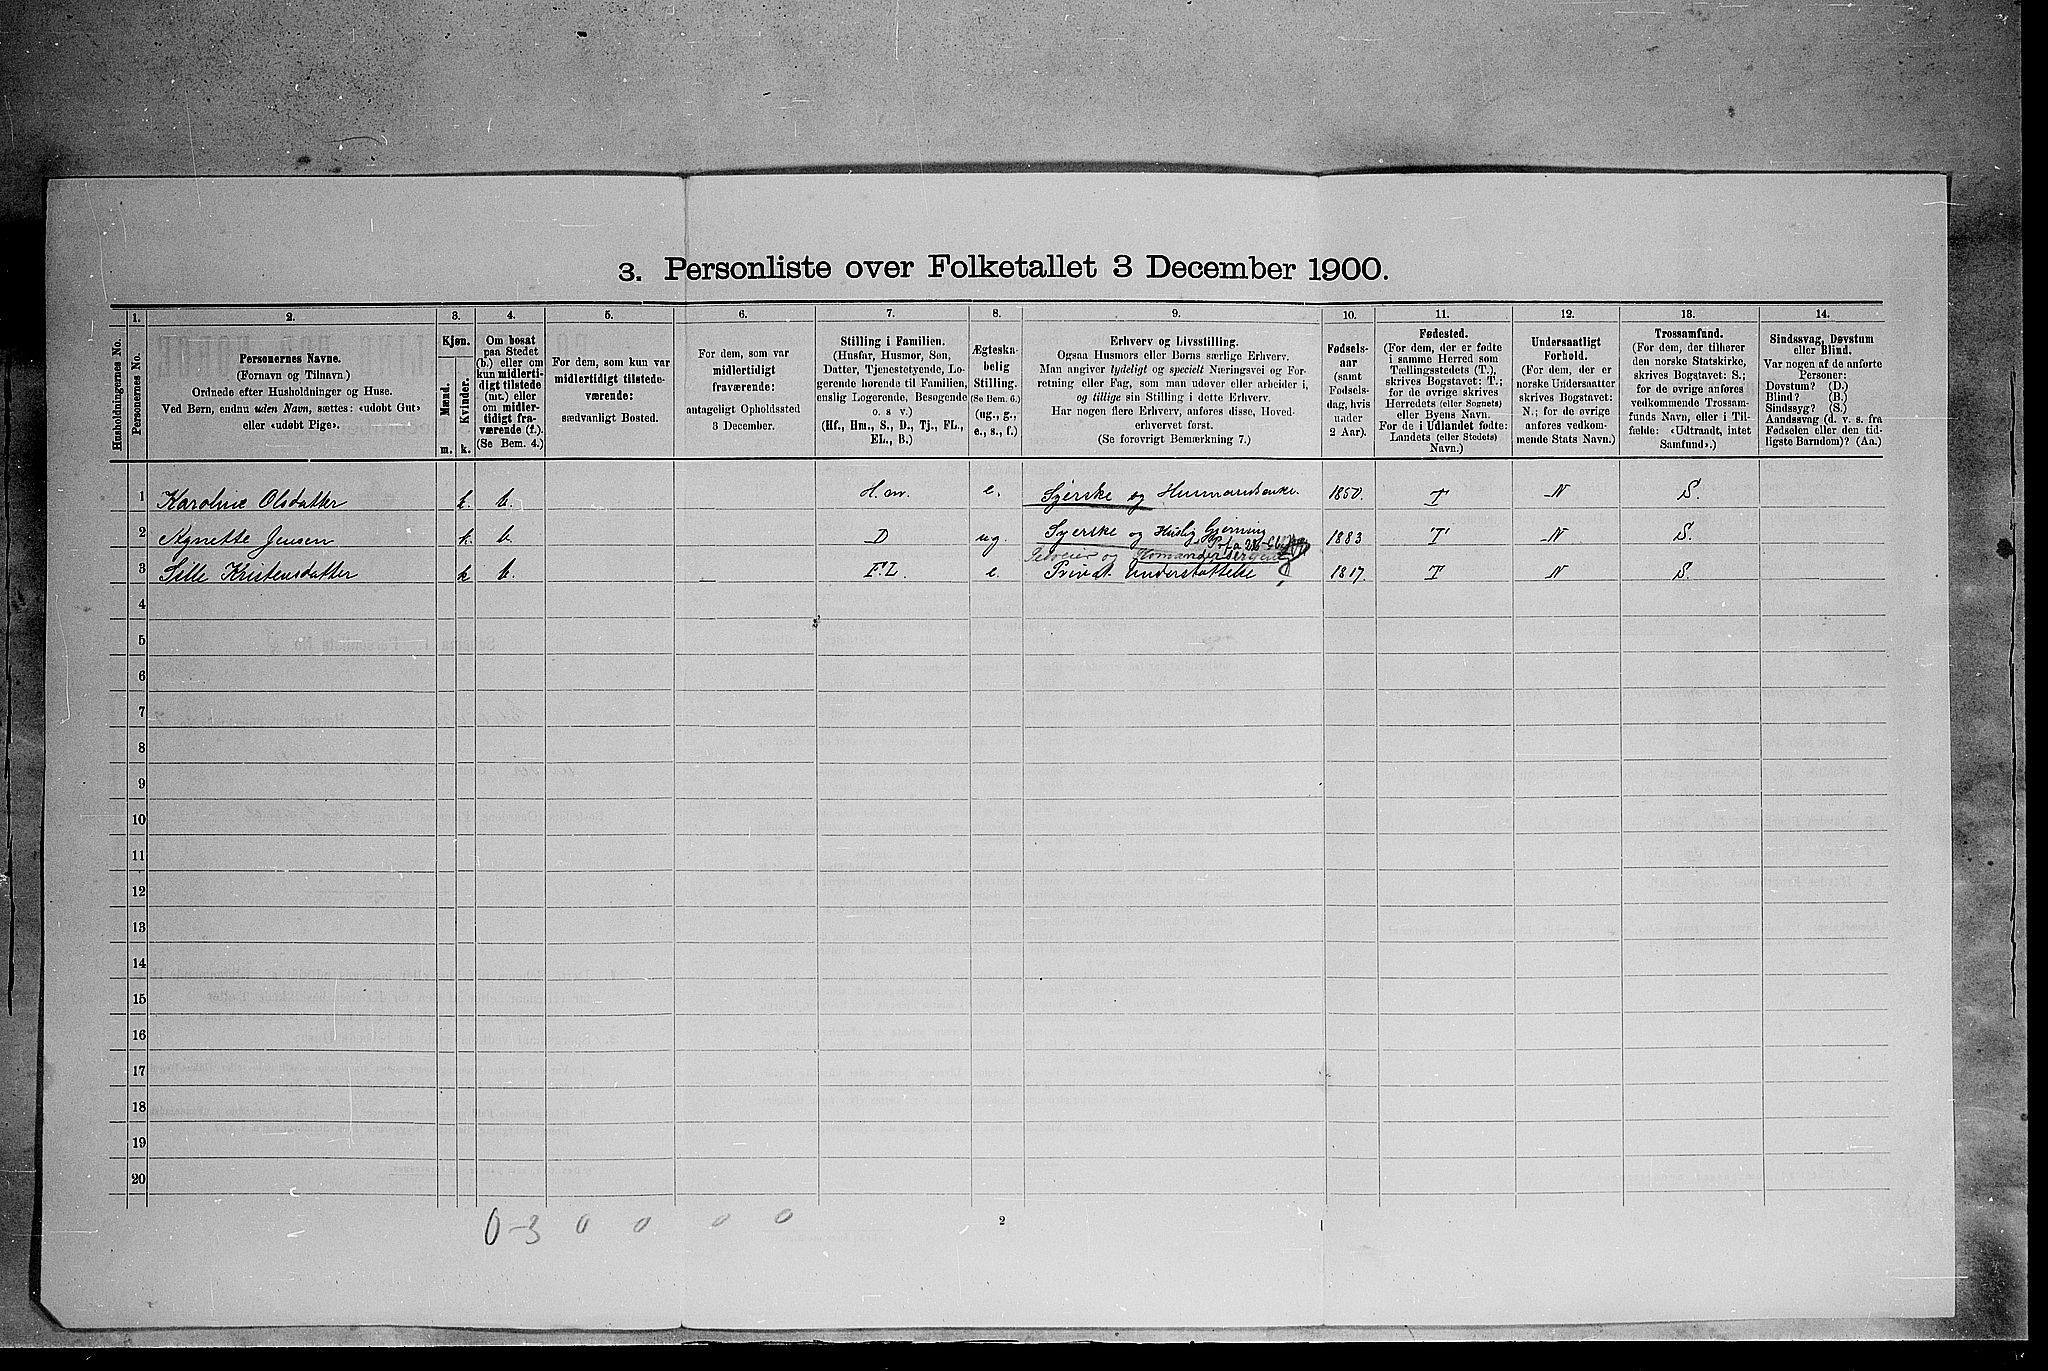 3. Personliste over Folketallet 3 December 1900.
1. 2. 3. 4. 5. 6. 7. 8. 9. 10. 11. 12. 13. 14.
Husholdningernes No.
Personernes No.
Personernes Navne.
(Fornavn og Tilnavn.)
Ordnede efter Husholdninger og Huse.
Ved Børn, endnu uden Navn, sættes: «udøbt Gut»
eller «udøbt Pige».
Kjøn.
Mænd.
Kvinder.
m. k.
Om bosat
paa Stedet
(b.) eller om
kun midlerti-
digt tilstede
(mt.) eller
om midler-
tidigt fra-
værende (f.)
(Se Bem. 4.)
For dem, som kun var
midlertidigt tilstede-
værende:
sædvanligt Bosted.
For dem, som var
midlertidigt
fraværende:
antageligt Opholdssted
3 December.
Stilling i Familien.
(Husfar, Husmor, Søn,
Datter, Tjenestetyende, Lo-
gerende hørende til Familien,
enslig Logerende, Besøgende
o. s v.)
(Hf., Hm., S., D., Tj., FL.,
EL., B.)
Ægteska-
belig
Stilling.
(Se Bem. 6.)
(ug., g.,
e., s., f.)
Erhverv og Livsstilling.
Ogsaa Husmors eller Børns særlige Erhverv.
Man angiver tydeligt og specielt Næringsvei og For-
retning eller Fag, som man udøver eller arbeider i,
og tillige sin Stilling i dette Erhverv.
Har nogen flere Erhverv, anføres disse, Hoved-
erhvervet først.
(Se forøvrigt Bemærkning 7.)
Fødsels-
aar
(samt
Fødsels-
dag, hvis
under
2 Aar).
Fødested.
(For dem, der er fødte
i samme Herred som
Tællingsstedets (T.),
skrives Bogstavet: T.;
for de øvrige skrives
Herredets (eller Sognets)
eller Byens Navn.
For de i Udlandet fødte:
Landets (eller Stedets)
Navn.)
Undersaatligt
Forhold.
(For dem, der er
norske Undersaatter
skrives Bogstavet:
N.; for de øvrige
anføres vedkom-
mende Stats Navn.)
Trossamfund.
(For dem, der tilhører
den norske Statskirke,
skrives Bogstavet: S.;
for de øvrige anføres
vedkommende Trossam-
funds Navn, eller i Til-
fælde: «Udtraadt, intet
Samfund».)
Sindssvag, Døvstum
eller Blind.
Var nogen af de anførte
Personer:
Døvstum? (D.)
Blind? (B.)
Sindssyg? (S.)
Aandssvag (d. v. s. fra
Fødselen eller den tid-
ligste Barndom)? (Aa.)
1 Karoline Olsdatter k. b. H.m. e. Syerske og Husmandsenke. 1850. T N S.
2 Agnette Jensen k. b. D ug. Syerske og Huslig Gjerning 1883 T N S.
3 Sille Kristensdatter k b. F.L. e. Privat Understøttelse 1817. T N S.
4
5
6
7
8
9
10
11
12
13
14
15
16
17
18
19
20
0-3 0 0 0 0
2